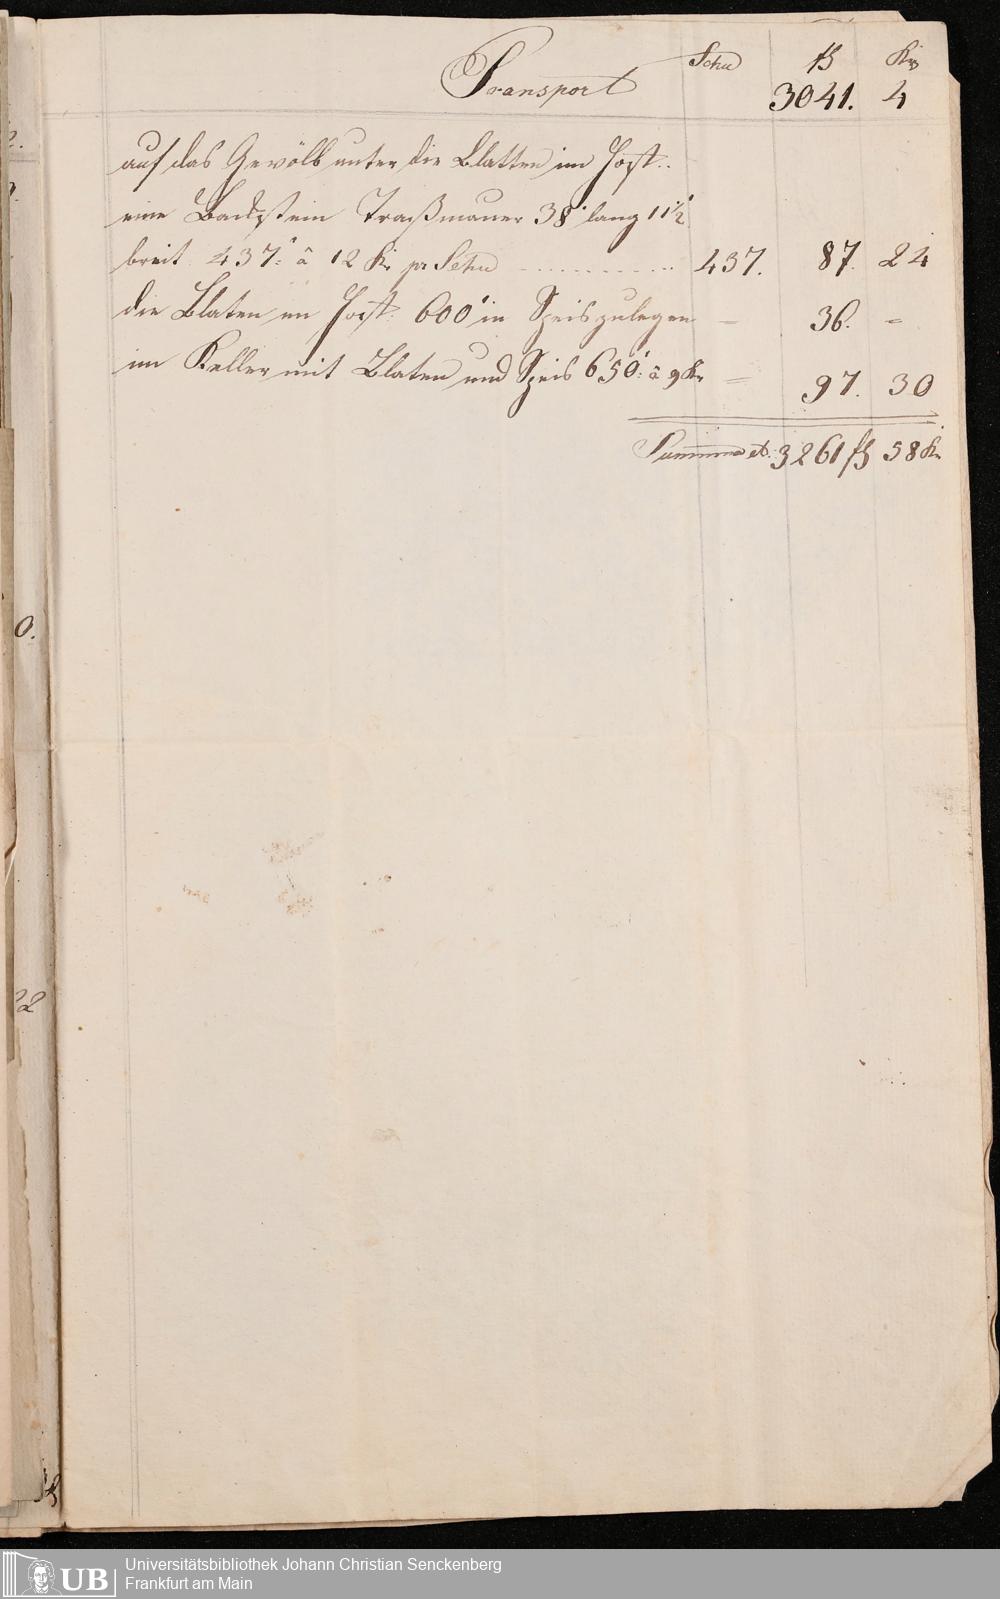 Schu fl Kr
Transport 3041. 4
auf das Gewölb unter die Blatten im Hof.
eine Backstein Traßmauer 38' lang 11½
breit 437' â 12 Kr pr Schu 437. 87. 24
die Blaten im Hof 600' in Speis zulegen – 36. –
im Keller mit Blaten und Speis 650' â 9 Kr – 97. 30
Summa 3261 fl 58 Kr
0.
22
UB
Universitätsbibliothek Johann Christian Senckenberg
Frankfurt am Main